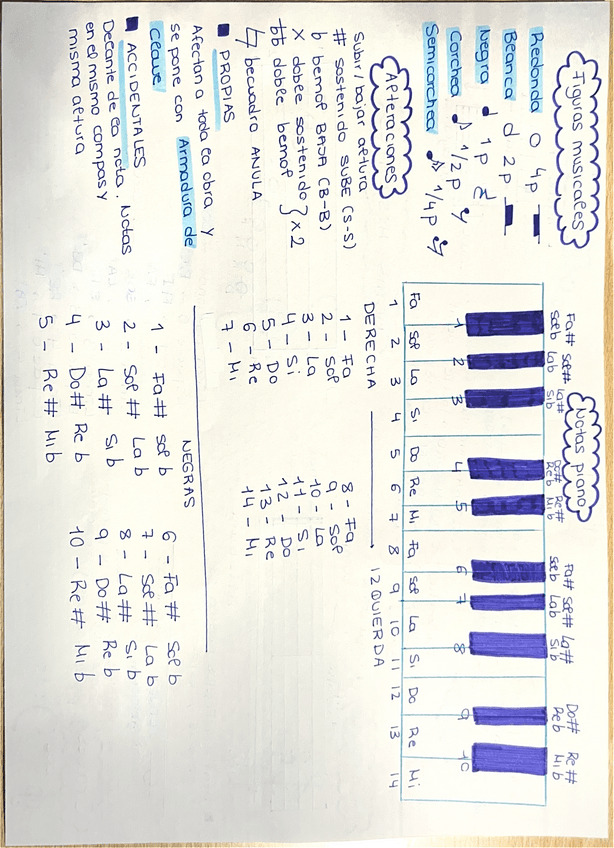 Figuras musicales
Redonda O 4p
Blanca d 2p
Negra 1p
Corchea ♪ 1/2p
Semicorchea 1/4p
Alteraciones
Subir/bajar altura
# sostenido SUBE (S-S)
b bemol BAJA (B-B)
x doble sostenido } x2
bb doble bemol
♮ becuadro ANULA
PROPIAS
Afectan a toda la obra y
se pone con Armadura de
Clave
ACCIDENTALES
Delante de la nota. Notas
en el mismo compas y
misma altura
Notas piano
Fa# Sol# La# Do# Re# Fa# Sol# La# Do# Re#
Solb Lab Sib Reb Mib Solb Lab Sib Reb Mib
1 2 3 4 5 6 7 8 9 10
Fa Sol La Si Do Re Mi Fa Sol La Si Do Re Mi
1 2 3 4 5 6 7 8 9 10 11 12 13 14
DERECHA IZQUIERDA
1 - Fa 8 - Fa
2 - Sol 9 - Sol
3 - La 10 - La
4 - Si 11 - Si
5 - Do 12 - Do
6 - Re 13 - Re
7 - Mi 14 - Mi
NEGRAS
1 - Fa# Sol b 6 - Fa# Sol b
2 - Sol# La b 7 - Sol# La b
3 - La# Si b 8 - La# Si b
4 - Do# Re b 9 - Do# Re b
5 - Re# Mi b 10 - Re# Mi b